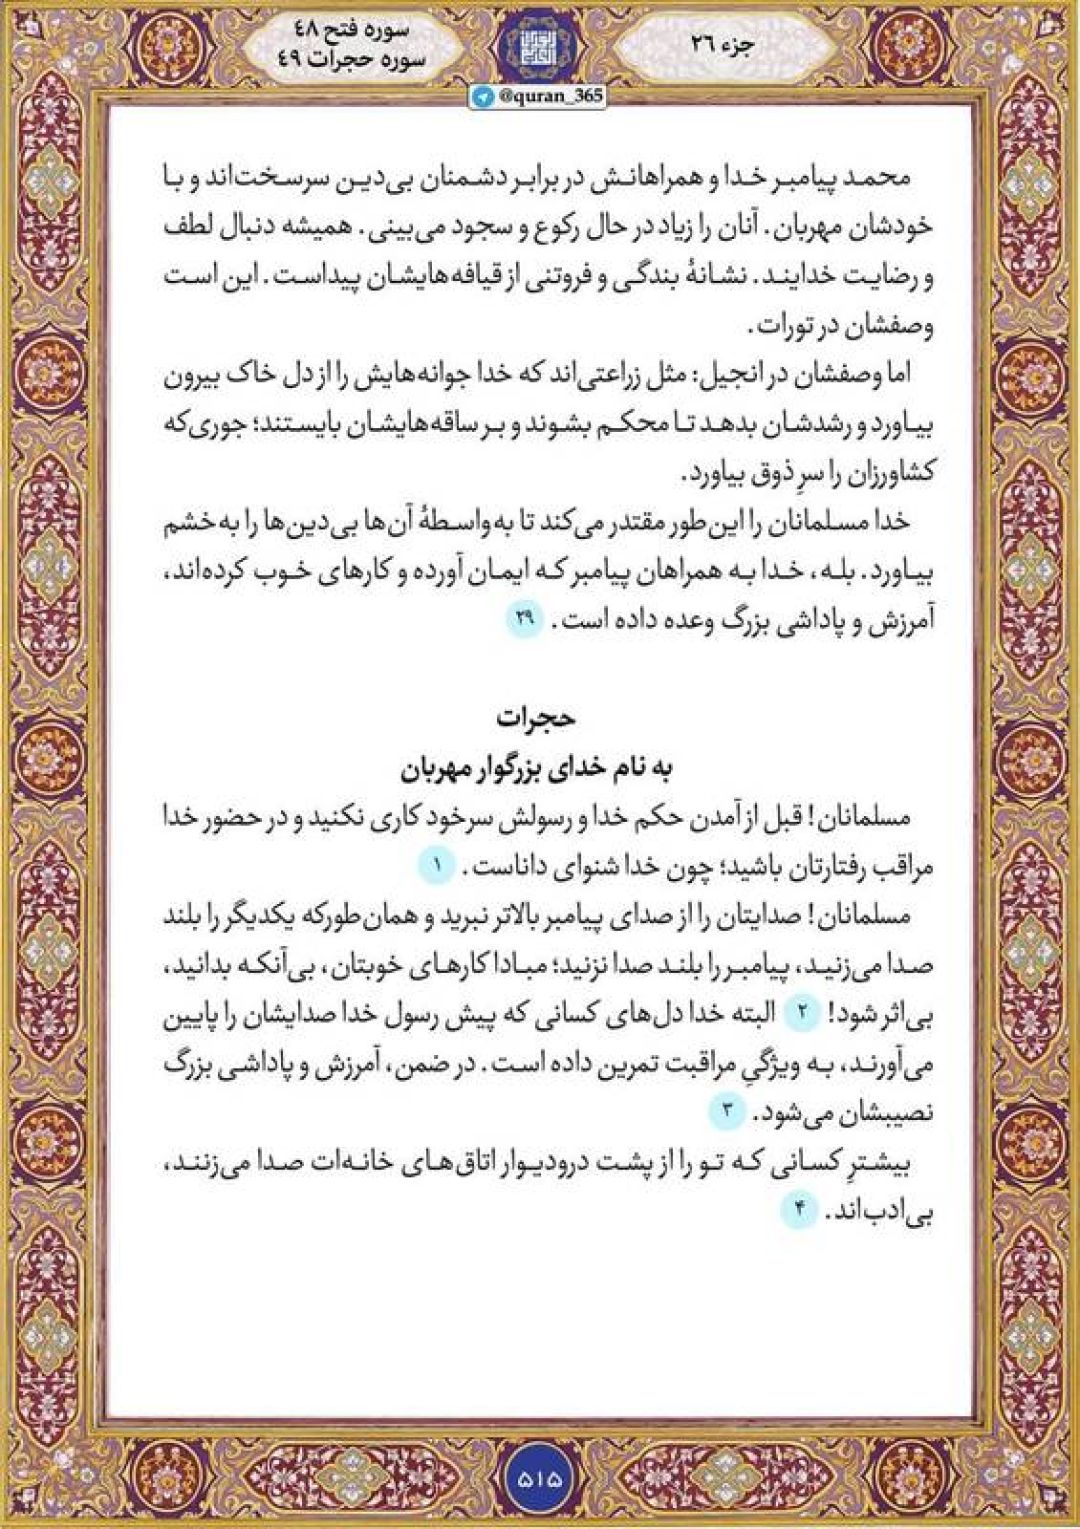 جزء ۲۶
سوره فتح ۴۸
سوره حجرات ۴۹
@quran_365
محمد پیامبر خدا و همراهانش در برابر دشمنان بی‌دین سرسخت‌اند و با
خودشان مهربان. آنان را زیاد در حال رکوع و سجود می‌بینی. همیشه دنبال لطف
و رضایت خدایند. نشانهٔ بندگی و فروتنی از قیافه‌هایشان پیداست. این است
وصفشان در تورات.
اما وصفشان در انجیل: مثل زراعتی‌اند که خدا جوانه‌هایش را از دل خاک بیرون
بیاورد و رشدشان بدهد تا محکم بشوند و بر ساقه‌هایشان بایستند؛ جوری‌که
کشاورزان را سرِ ذوق بیاورد.
خدا مسلمانان را این‌طور مقتدر می‌کند تا به‌واسطهٔ آن‌ها بی‌دین‌ها را به‌خشم
بیاورد. بله، خدا به همراهان پیامبر که ایمان آورده و کارهای خوب کرده‌اند،
آمرزش و پاداشی بزرگ وعده داده است. ۲۹
حجرات
به نام خدای بزرگوار مهربان
مسلمانان! قبل از آمدن حکم خدا و رسولش سرخود کاری نکنید و در حضور خدا
مراقب رفتارتان باشید؛ چون خدا شنوای داناست. ۱
مسلمانان! صدایتان را از صدای پیامبر بالاتر نبرید و همان‌طورکه یکدیگر را بلند
صدا می‌زنید، پیامبر را بلند صدا نزنید؛ مبادا کارهای خوبتان، بی‌آنکه بدانید،
بی‌اثر شود! ۲ البته خدا دل‌های کسانی که پیش رسول خدا صدایشان را پایین
می‌آورند، به ویژگیِ مراقبت تمرین داده است. در ضمن، آمرزش و پاداشی بزرگ
نصیبشان می‌شود. ۳
بیشترِ کسانی که تو را از پشت درودیوار اتاق‌های خانه‌ات صدا می‌زنند،
بی‌ادب‌اند. ۴
۵۱۵